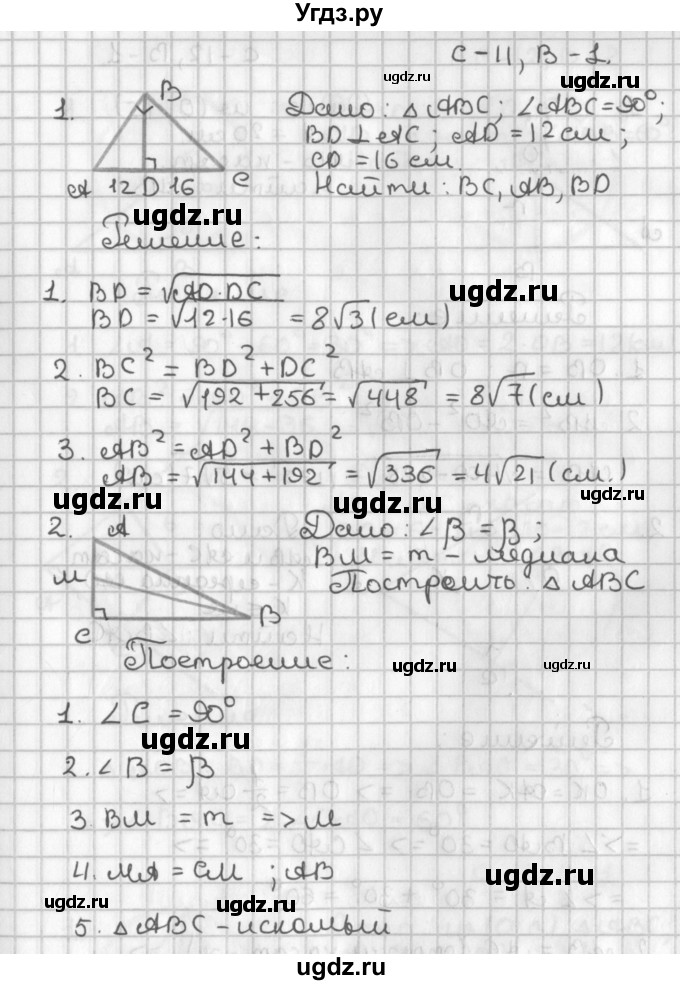 Угдз.ру
С-11, В-1.
ugdz.ru
ugdz.ru
1.
B
A 12 D 16 C
Дано: △ ABC; ∠ABC = 90°;
BD ⊥ AC; AD = 12 см;
CD = 16 см.
Найти: BC, AB, BD
ugdz.ru
ugdz.ru
Решение:
1. BD = √AD·DC
ugdz.ru
BD = √12·16 = 8√3 (см)
2. BC² = BD² + DC²
BC = √192 + 256 = √448 = 8√7 (см)
3. AB² = AD² + BD²
AB = √144 + 192 = √336 = 4√21 (см.)
ugdz.ru ugdz.ru ugdz.ru
2.
A
M
C
B
Дано: ∠B = β;
BM = m - медиана
Построить: △ ABC
Построение:
ugdz.ru ugdz.ru
1. ∠ C = 90°
ugdz.ru
2. ∠ B = β
3. BM = m => M
4. MA = CM ; AB
ugdz.ru
ugdz.ru ugdz.ru
5. △ ABC - искомый
ugdz.ru
ugdz.ru